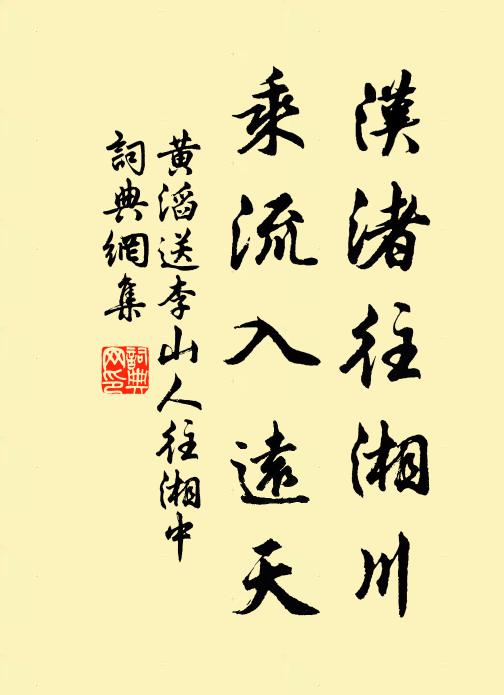 漢渚往湘川
乘流入遠天
黄滔送李山人往湘中
詞典網集
詞典
网印